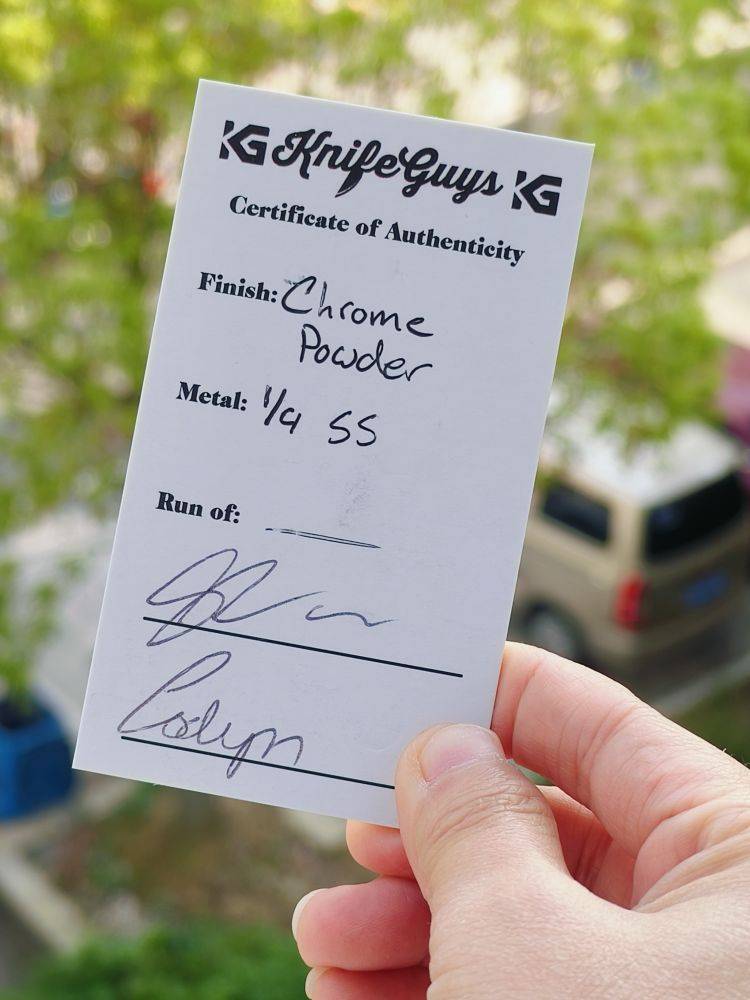 KG KnifeGuys KG
Certificate of Authenticity
Finish: Chrome
Powder
Metal: 1/4 SS
Run of: